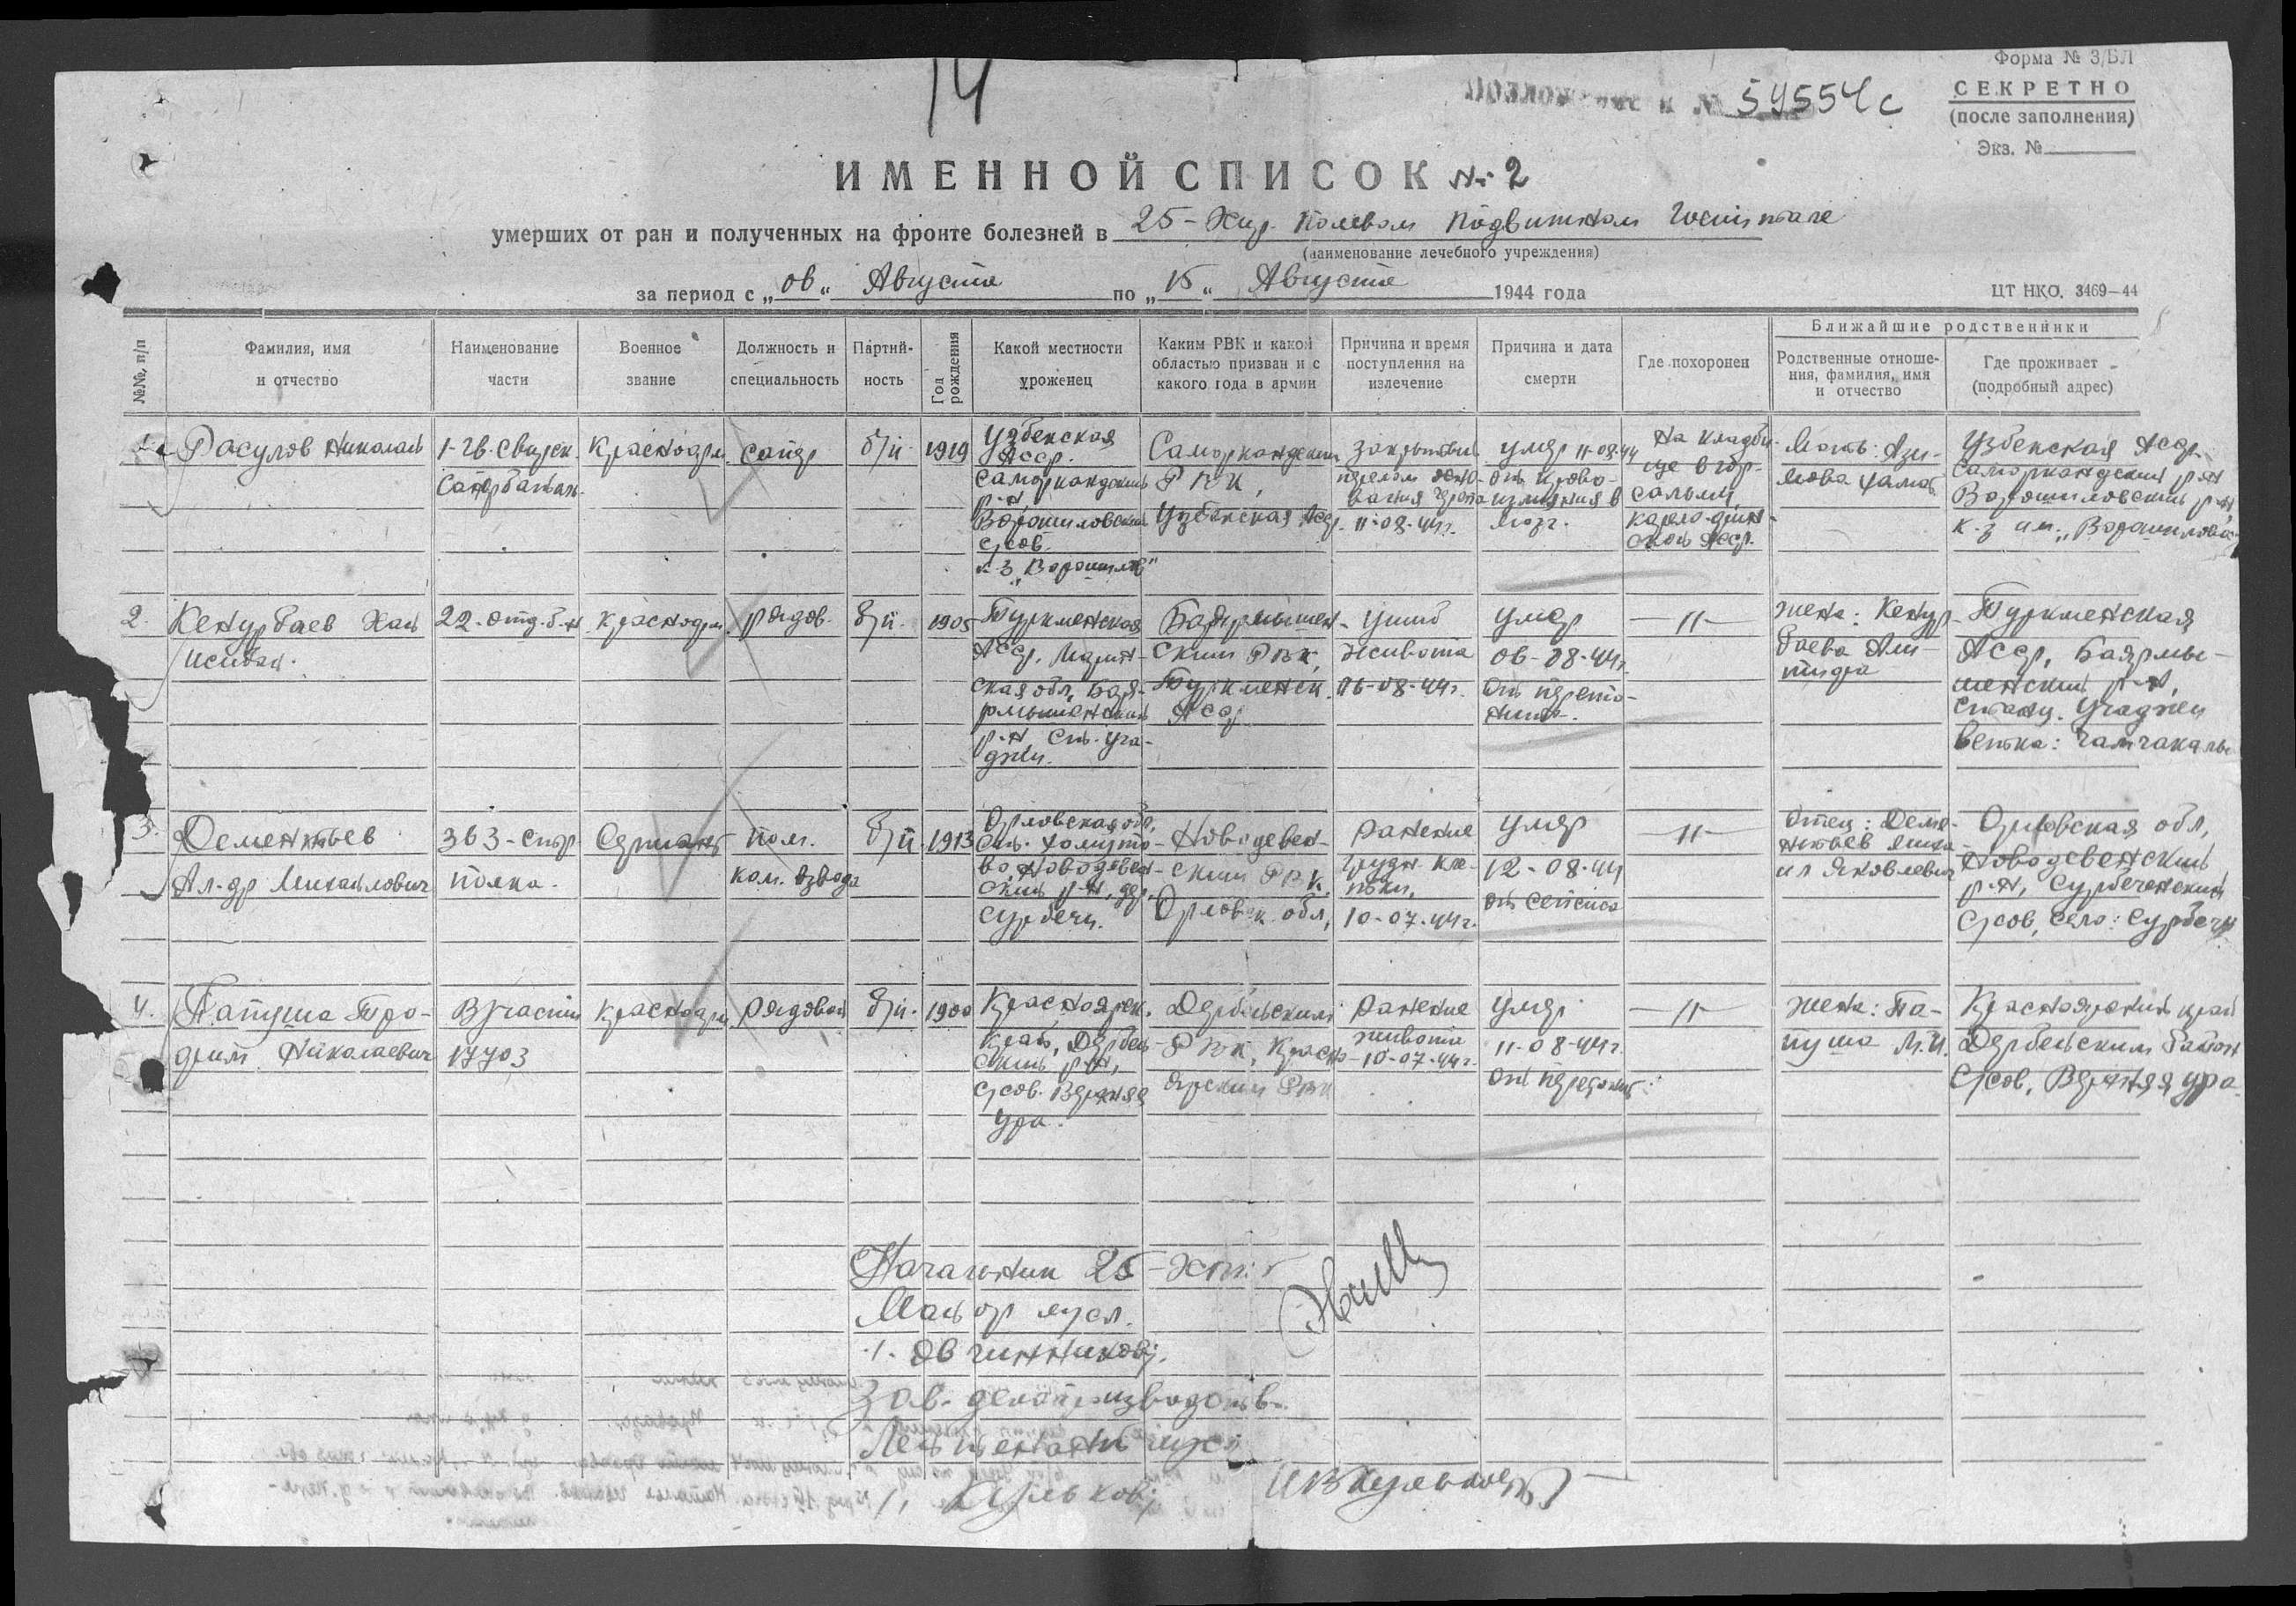 14
№ 59554с
Форма № 3/БЛ
СЕКРЕТНО
(после заполнения)
Экз. №
ИМЕННОЙ СПИСОК № 2
умерших от ран и полученных на фронте болезней в 25-Хир. Полевом Подвижном Госпитале
(наименование лечебного учреждения)
за период с „06“ Августа по „15“ Августа 1944 года
ЦТ НКО. 3469—44
№№ п/п
Фамилия, имя
и отчество
Наименование
части
Военное
звание
Должность и
специальность
Партий-
ность
Год
рождения
Какой местности
уроженец
Каким РВК и какой
областью призван и с
какого года в армии
Причина и время
поступления на
излечение
Причина и дата
смерти
Где похоронен
Ближайшие родственники
Родственные отноше-
ния, фамилия, имя
и отчество
Где проживает
(подробный адрес)
1.
Расулов Николай
1-гв. Свирск.
Сапер батал.
Красноарм.
сапер
б/п
1919
Узбекская
Асср.
Самаркандский
р-н,
Ворошиловский
с/сов.
к-з „Ворошилов"
Самаркандским
РВК,
Узбекская Асср.
закрытый
перелом осно-
вания черепа
11-08-44г.
умер 11-08-44
от крово-
излияния в
мозг.
На кладби-
ще в гор-
Карело-фин-
ской Асср.
Мать: Ази-
мова
Узбекская Асср
Самаркандский р-н
Ворошиловский р-н,
к-з им. „Ворошилова"
2.
Кенурбаев Хай
22-отд. б-н
Красноарм.
рядов.
б/п.
1905
Туркменская
Асср. Марий-
ская обл, Бай-
рамышенский
р-н ст. Уча-
джи.
Байрамышен-
ским РВК,
Туркменск.
Асср
Ушиб
живота
06-08-44г.
умер
06-08-44г.
От перито-
нита.
—11—
жена: Кенур-
баева
Туркменская
Асср, Байрамы-
шенский р-н,
станц. Учаджи
ветка: Чамчакалы
3.
Дементьев
Ал-др Михайлович
363-стр
полка.
Сержант
пом.
ком. взвода
б/п
1913
Орловская обл,
ст. Хомуто-
во, Новодевен-
ский р-н, дер.
Сурбечи.
Новодевен-
ским РВК,
Орловск. обл,
Ранение
грудн. кле-
тки,
10-07-44г.
умер
12-08-44
от сепсиса
—11—
Отец: Деме-
нтьев Миха-
ил Яковлевич
Орловская обл,
Новодевенский
р-н, Сурбеченский
с/сов, село: Сурбечи
4.
Папуша Тро-
фим Николаевич
В/части
17703
Красноарм
рядовой
б/п.
1900
Красноярск.
край, Дербен-
ский р-н,
с/сов. Верхняя
Ура.
Дербенским
РВК, Красно-
ярским РВК
Ранение
живота
10-07-44г.
умер
11-08-44г.
От перитонит.
—11—
жена: Па-
пуша М.И.
Красноярский край
Дербенским район
с/сов, Верхняя Ура.
Начальник 25-ХППГ
Майор м/сл.
/. Овчинников/.
Зав. делопроизводств.
Лейтенант м/сл
/. Кульков/